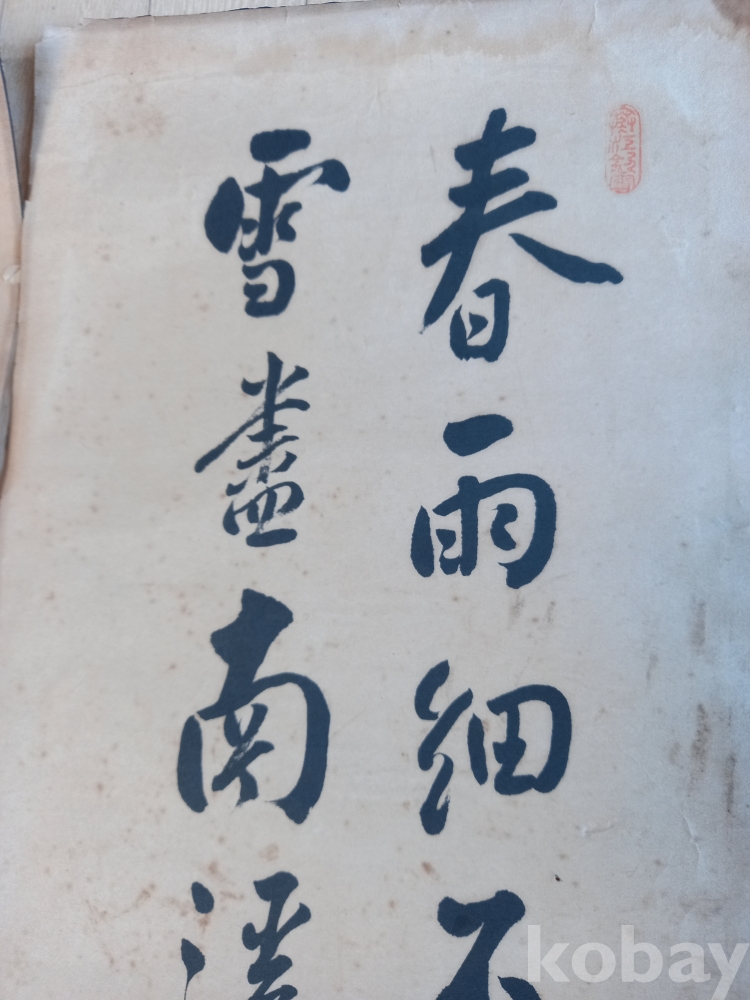 春雨細不
雪盡南溪
kobay